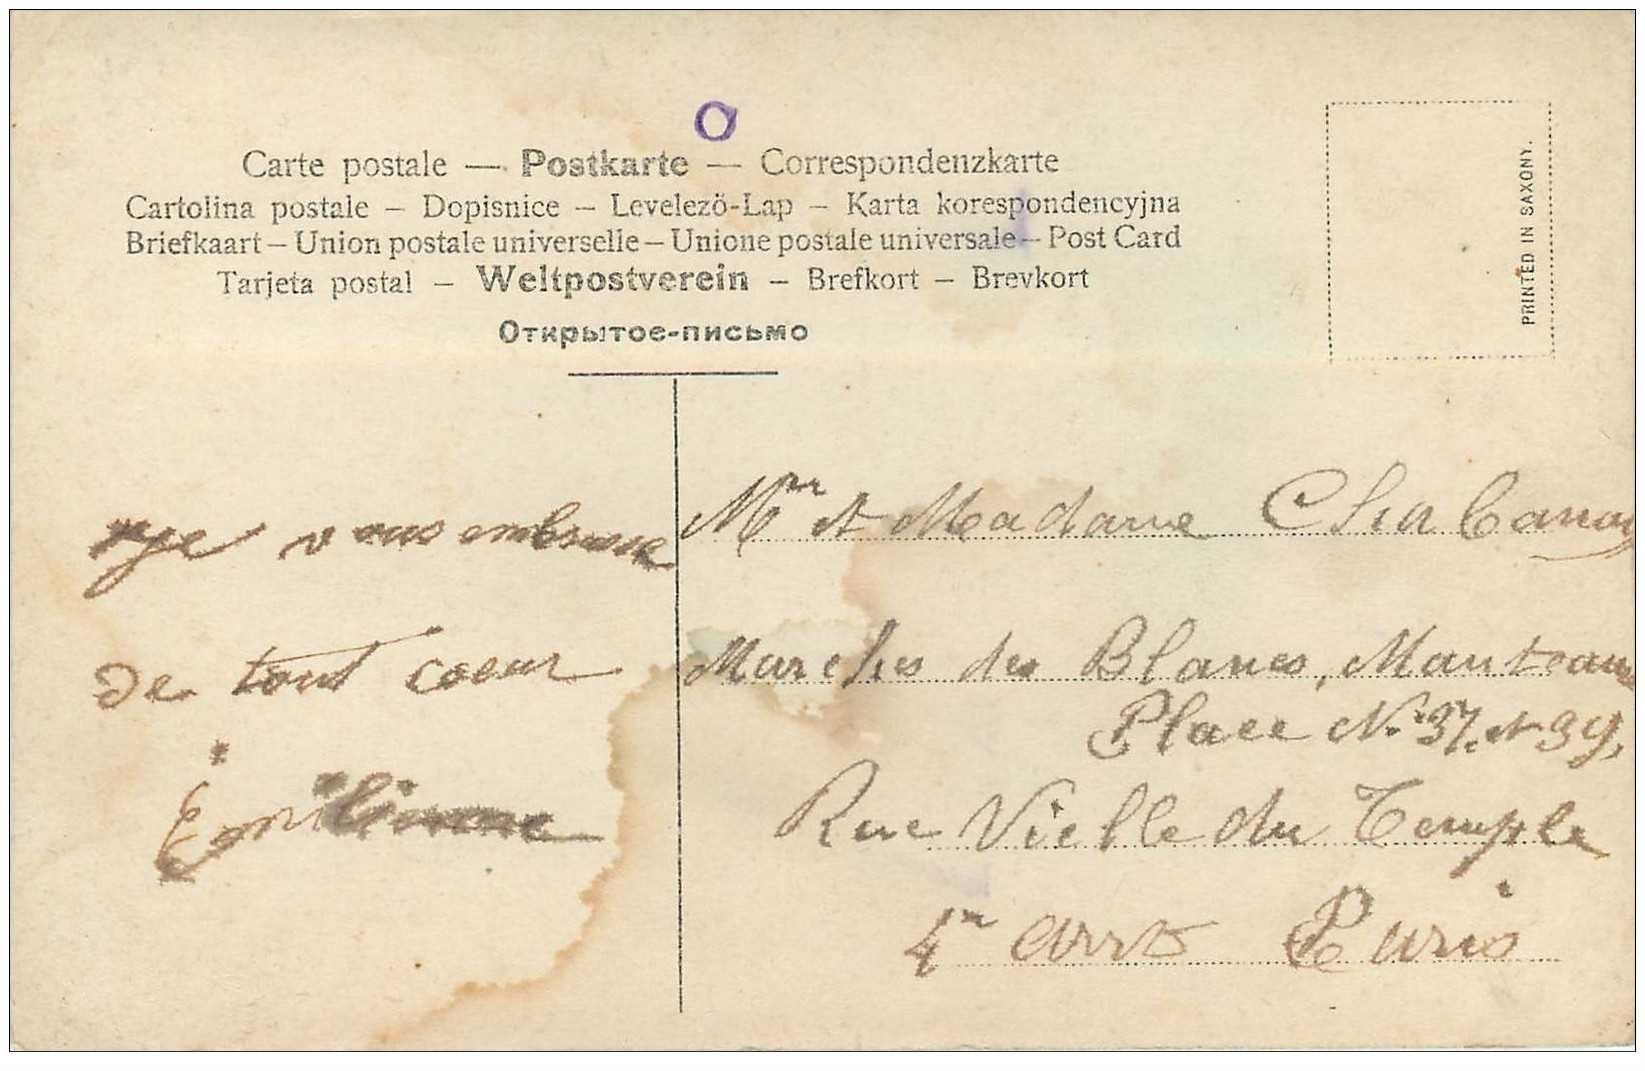 O
Carte postale — Postkarte — Correspondenzkarte
Cartolina postale – Dopisnice – Levelező-Lap – Karta korespondencyjna
Briefkaart – Union postale universelle – Unione postale universale – Post Card
Tarjeta postal – Weltpostverein – Brefkort – Brevkort
Открытое-письмо
PRINTED IN SAXONY.
je vous embrasse
de tout coeur
Mr et Madame
Marches des Blancs, Manteaux
Place No 37. et 39,
Rue Vielle du Temple
4m arrt Paris